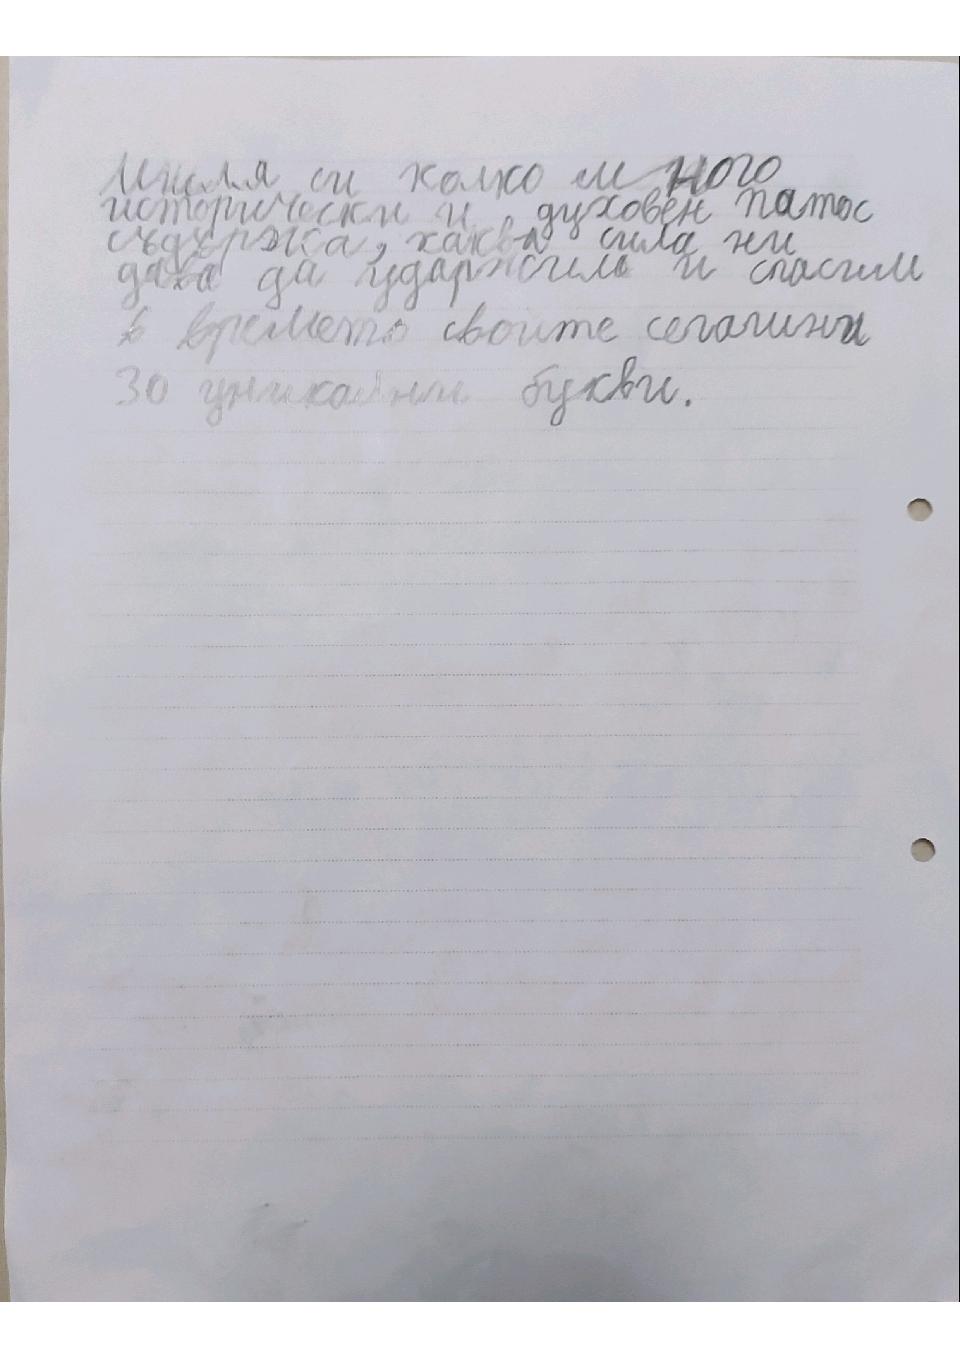 Мисля си колко много
исторически и духовен патос
съдържа, каква сила ни
дава да удържим и спасим
в времето своите сегашни
30 уникални букви.